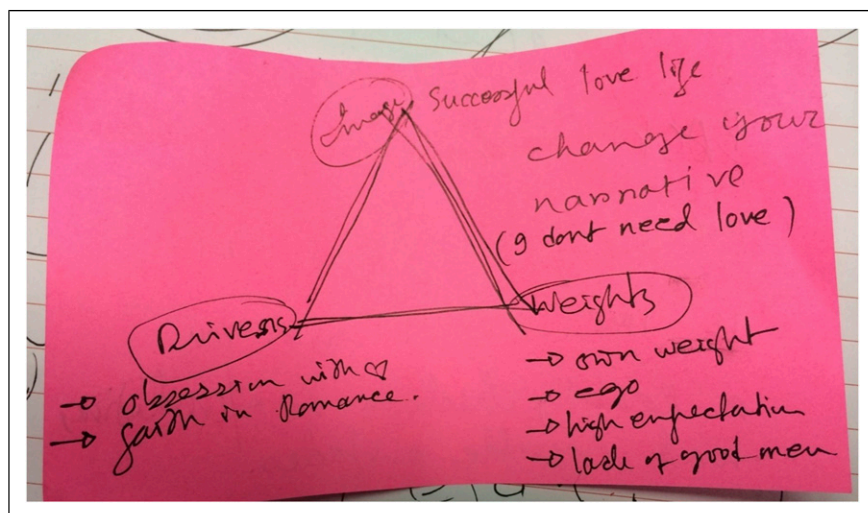 Image Successful love life
change your
narrative
(I dont need love)
Drivers
→ obsession with ♡
→ faith in Romance.
Weights
→ own weight
→ ego
→ high expectation
→ lack of good men